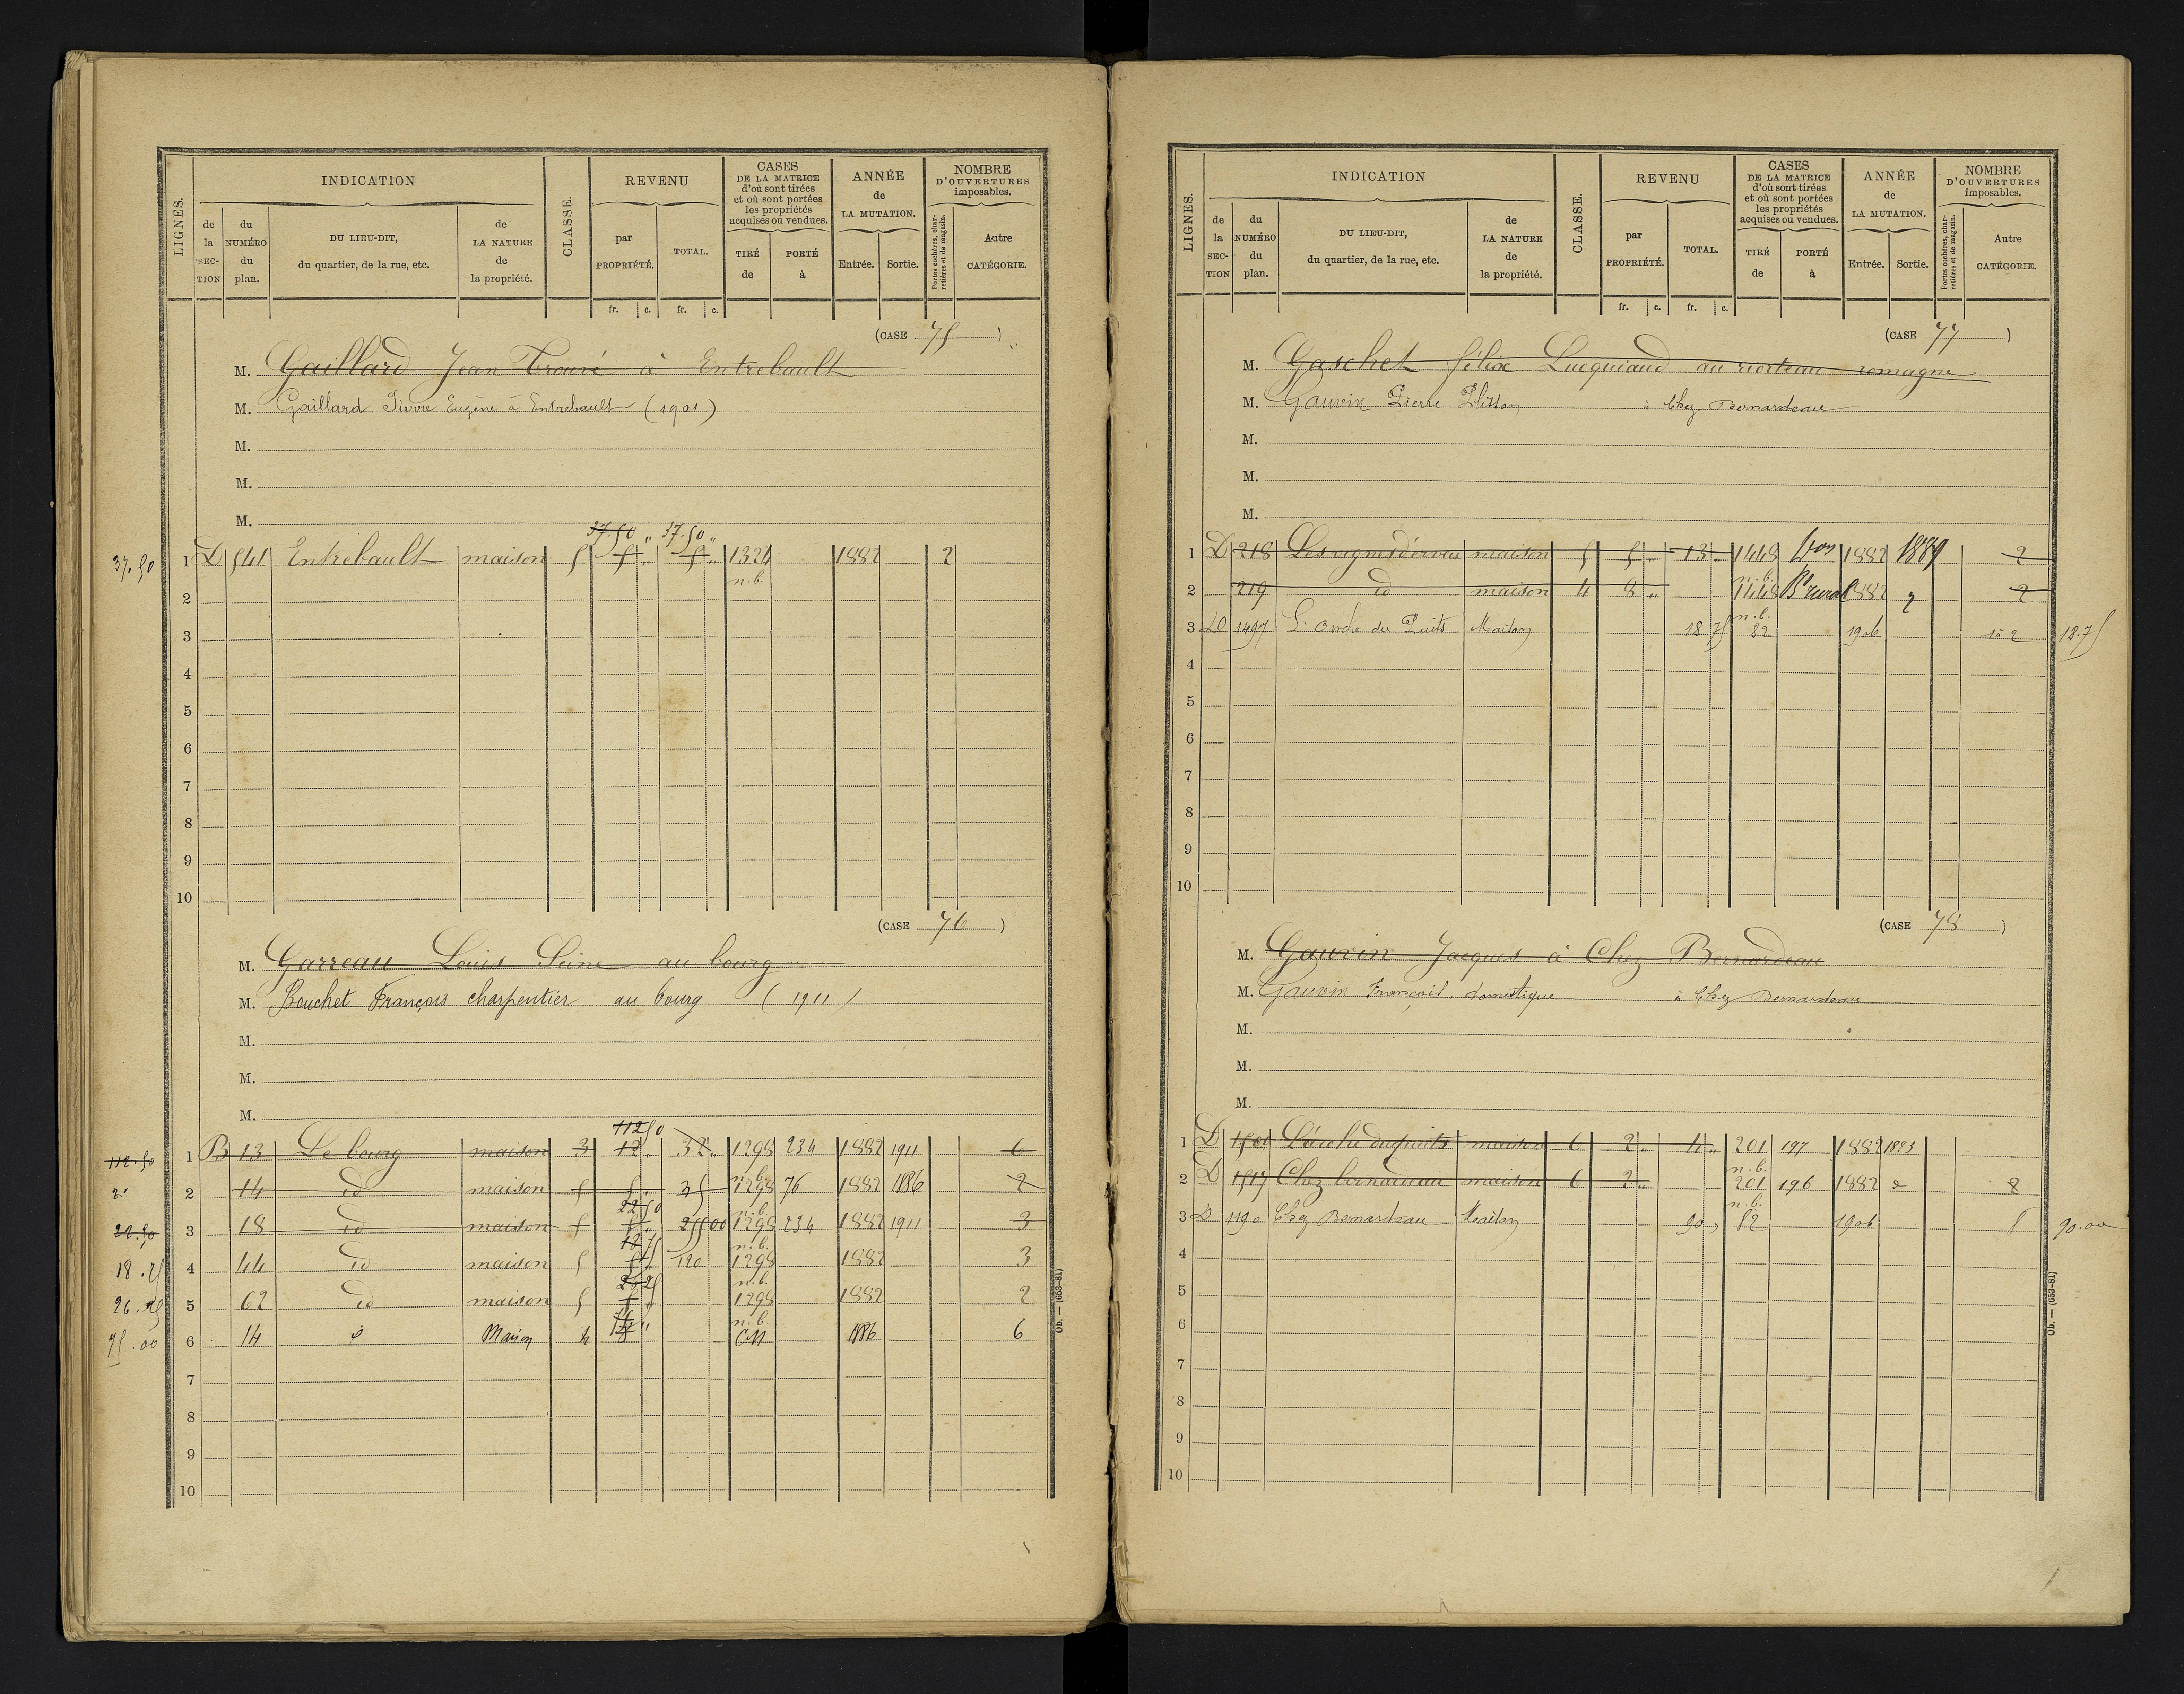 LIGNES. INDICATION CLASSE. REVENU CASES DE LA MATRICE d'où sont tirées et où sont portées les propriétés acquises ou vendues. ANNÉE de LA MUTATION. NOMBRE D'OUVERTURES imposables.
de la SECTION du NUMÉRO du plan. DU LIEU-DIT, du quartier, de la rue, etc. de LA NATURE de la propriété. par PROPRIÉTÉ. TOTAL. TIRÉ de PORTÉ à Entrée. Sortie. Portes cochères, charretières et de magasin. Autre CATÉGORIE.
fr. c. fr. c.
(CASE 75)
M. Gaillard Jean Trouvé à Entrebault
M. Gaillard Pierre Eugène à Entrebault (1901)
M.
M.
M.
37.50 " 37.50 "
37.50 1 D 541 Entrebault maison 5 5 " 5 " 1324 1882 2
n.b.
2
3
4
5
6
7
8
9
10
(CASE 76)
M. Garreau Louis Seine au bourg
M. Bouchet François charpentier au bourg (1911)
M.
M.
M.
112 50
112.50 1 B 13 Le bourg maison 3 12 " 32 " 1298 234 1882 1911 6
n.b.
2 14 id maison 5 5 " 35 1298 76 1882 1886 2
22 50 n.b.
22.50 3 18 id maison 5 5 " 1298 234 1882 1911 3
18 75 n.b.
18.75 4 44 id maison 5 5 " 120 1298 1882 3
26 25 n.b.
26.25 5 62 id maison 5 5 " 1298 1882 2
n.b.
75.00 6 14 d° Maison 4 CN 1886 6
7
8
9
10
Ob. — (653-81)
LIGNES. INDICATION CLASSE. REVENU CASES DE LA MATRICE d'où sont tirées et où sont portées les propriétés acquises ou vendues. ANNÉE de LA MUTATION. NOMBRE D'OUVERTURES imposables.
de la SECTION du NUMÉRO du plan. DU LIEU-DIT, du quartier, de la rue, etc. de LA NATURE de la propriété. par PROPRIÉTÉ. TOTAL. TIRÉ de PORTÉ à Entrée. Sortie. Portes cochères, charretières et de magasin. Autre CATÉGORIE.
fr. c. fr. c.
(CASE 77)
M. Gaschet félix Lucquiaud au riorteau romagne
M. Gauvin Pierre Plisson à Chez Bernardeau
M.
M.
M.
1 D 218 Les vignes maison 5 5 " 13 " 1448 1882 1889 2
n.b.
2 219 id maison 4 8 " 1448 Bt rural 1882 2
n.b.
3 D 1497 L'Ouche du Puits Maison 18 75 82 1906 2 18.75
4
5
6
7
8
9
10
(CASE 78)
M. Gauvin Jacques à Chez Bernardeau
M. Gauvin François, domestique à Chez Bernardeau
M.
M.
M.
1 D 1500 L'ouche du puits maison 6 2 " 4 " 201 197 1882 1893
n.b.
2 D 1517 Chez bernardeau maison 6 2 " 201 196 1882 2
n.b.
3 D 1190 Chez Bernardeau Maison 90 " 82 1906 5 90.00
4
5
6
7
8
9
10
Ob. — (653-81)